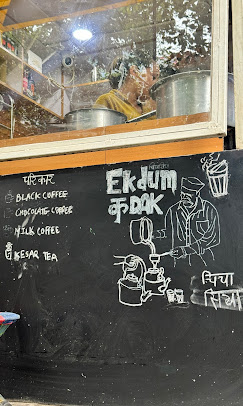 परिकार
BLACK COFFEE
CHOCOLATE COFFEE
MILK COFFEE
KESAR TEA
Ekdum
कDAK
चिया